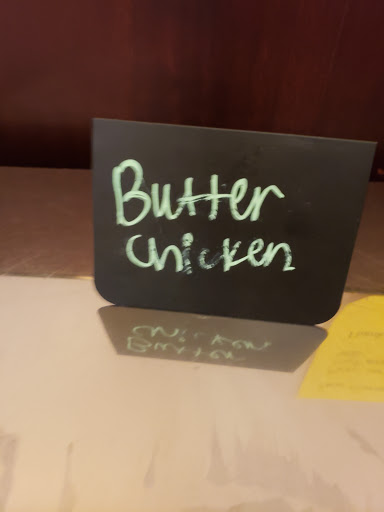 Butter
Chicken